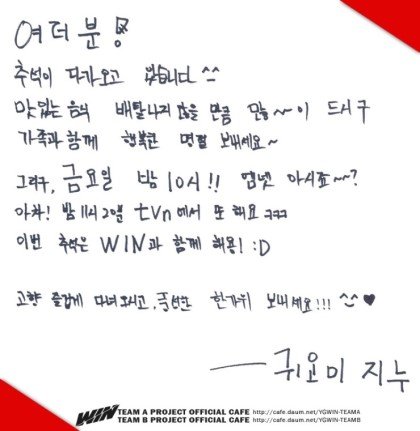 여더분
추석이 다가오고 있습니다 ^^
맛있는 음식 배탈나지 않을 만큼 많~~이 드시구
가족과 함께 행복한 명절 보내세요~
그리구, 금요일 밤 10시!! 엠넷 아시죠~~?
아차! 밤 11시 20분 tvn에서 또 해요 ㅋㅋㅋ
이번 추석은 WIN과 함께 해용! :D
고향 즐겁게 다녀오시고, 풍선한 한가위 보내세요!!! ^^ ♥
— 귀요미 지누
WIN TEAM A PROJECT OFFICIAL CAFE http://cafe.daum.net/YGWIN-TEAMA
TEAM B PROJECT OFFICIAL CAFE http://cafe.daum.net/YGWIN-TEAMB